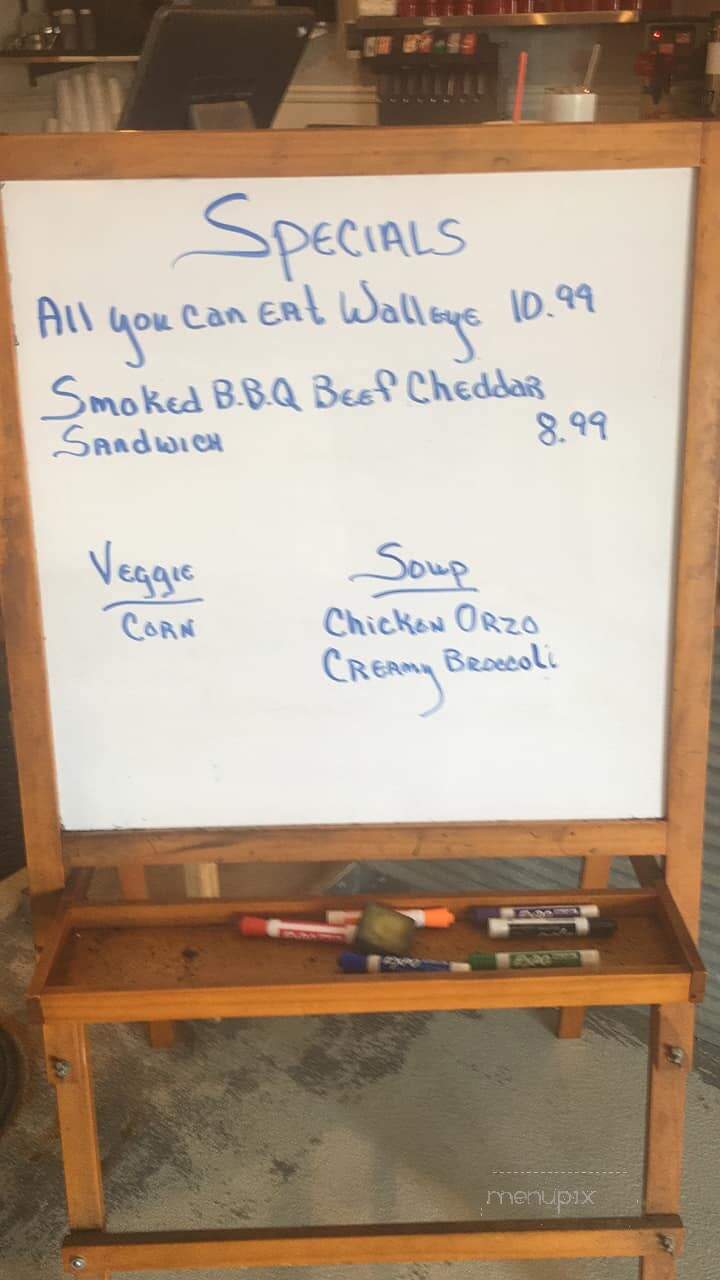 Specials
All you can Eat Walleye 10.99
Smoked B.B.Q Beef Cheddar
Sandwich 8.99
Veggie Soup
Corn Chicken Orzo
Creamy Broccoli
EXPO
EXPO
menupix